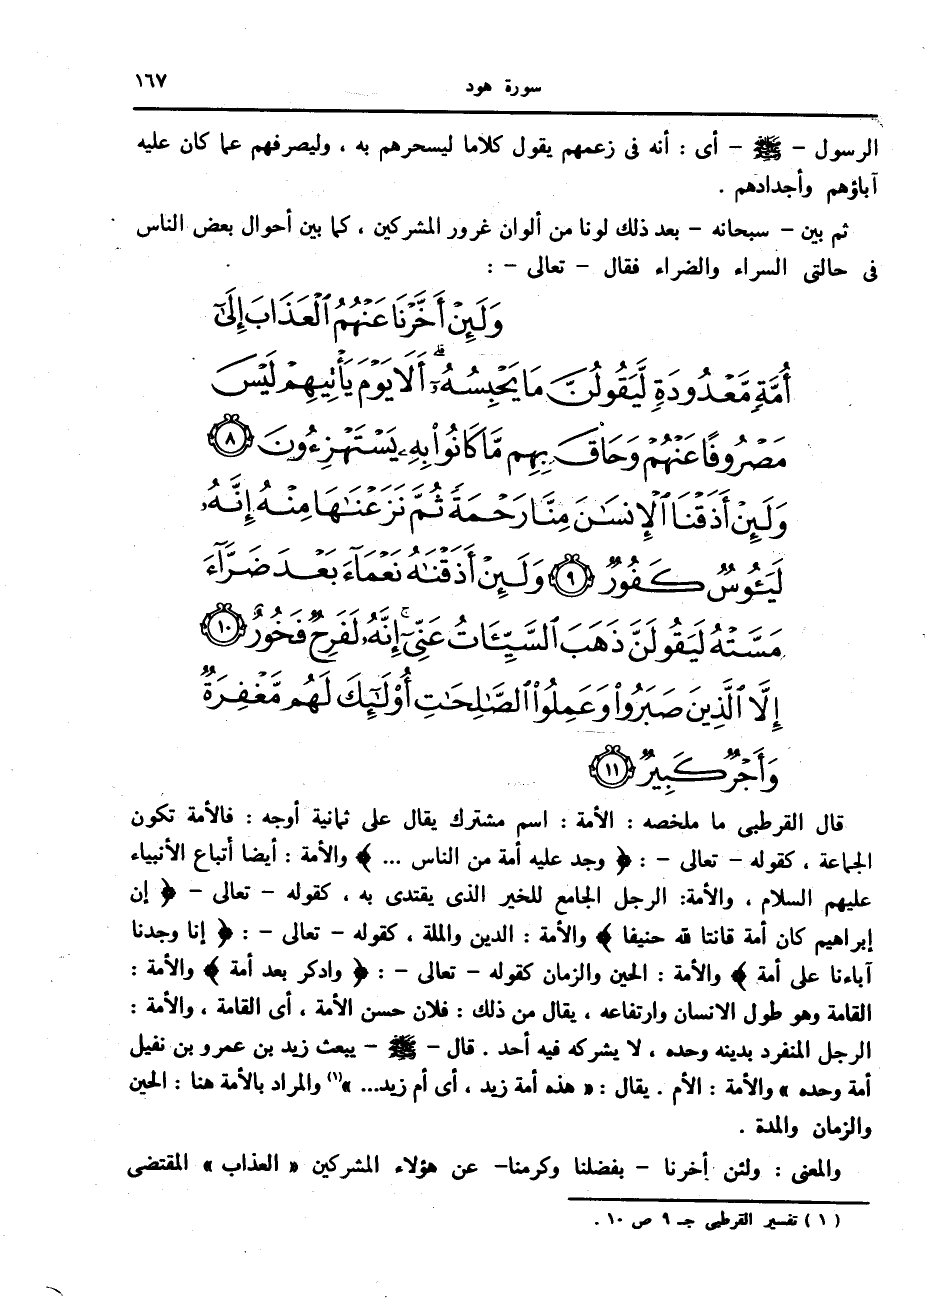 سورة هود ١٦٧
الرسول – ﷺ – أى : أنه فى زعمهم يقول كلاما ليسحرهم به ، وليصرفهم عما كان عليه
آباؤهم وأجدادهم .
ثم بين – سبحانه – بعد ذلك لونا من ألوان غرور المشركين ، كما بين أحوال بعض الناس
فى حالتى السراء والضراء فقال – تعالى – :
وَلَئِنْ أَخَّرْنَا عَنْهُمُ ٱلْعَذَابَ إِلَىٰٓ
أُمَّةٍ مَّعْدُودَةٍ لَّيَقُولُنَّ مَا يَحْبِسُهُۥٓ ۗ أَلَا يَوْمَ يَأْتِيهِمْ لَيْسَ
مَصْرُوفًا عَنْهُمْ وَحَاقَ بِهِم مَّا كَانُوا۟ بِهِۦ يَسْتَهْزِءُونَ ٨
وَلَئِنْ أَذَقْنَا ٱلْإِنسَٰنَ مِنَّا رَحْمَةً ثُمَّ نَزَعْنَٰهَا مِنْهُ إِنَّهُۥ
لَيَـُٔوسٌ كَفُورٌ ٩ وَلَئِنْ أَذَقْنَٰهُ نَعْمَآءَ بَعْدَ ضَرَّآءَ
مَسَّتْهُ لَيَقُولَنَّ ذَهَبَ ٱلسَّيِّـَٔاتُ عَنِّىٓ ۚ إِنَّهُۥ لَفَرِحٌ فَخُورٌ ١٠
إِلَّا ٱلَّذِينَ صَبَرُوا۟ وَعَمِلُوا۟ ٱلصَّٰلِحَٰتِ أُو۟لَٰٓئِكَ لَهُم مَّغْفِرَةٌ
وَأَجْرٌ كَبِيرٌ ١١
قال القرطبى ما ملخصه : الأمة : اسم مشترك يقال على ثمانية أوجه : فالأمة تكون
الجماعة ، كقوله – تعالى – : ﴿ وجد عليه أمة من الناس ... ﴾ والأمة : أيضا أتباع الأنبياء
عليهم السلام ، والأمة: الرجل الجامع للخير الذى يقتدى به ، كقوله – تعالى – ﴿ إن
إبراهيم كان أمة قانتا لله حنيفا ﴾ والأمة : الدين والملة ، كقوله – تعالى – : ﴿ إنا وجدنا
آباءنا على أمة ﴾ والأمة : الحين والزمان كقوله – تعالى – : ﴿ وادكر بعد أمة ﴾ والأمة :
القامة وهو طول الانسان وارتفاعه ، يقال من ذلك : فلان حسن الأمة ، أى القامة ، والأمة :
الرجل المنفرد بدينه وحده ، لا يشركه فيه أحد . قال – ﷺ – يبعث زيد بن عمرو بن نفيل
أمة وحده » والأمة : الأم . يقال : « هذه أمة زيد ، أى أم زيد... »(١) والمراد بالأمة هنا : الحين
والزمان والمدة .
والمعنى : ولئن أخرنا – بفضلنا وكرمنا– عن هؤلاء المشركين « العذاب » المقتضى
( ١ ) تفسير القرطبى جـ ٩ ص ١٠ .